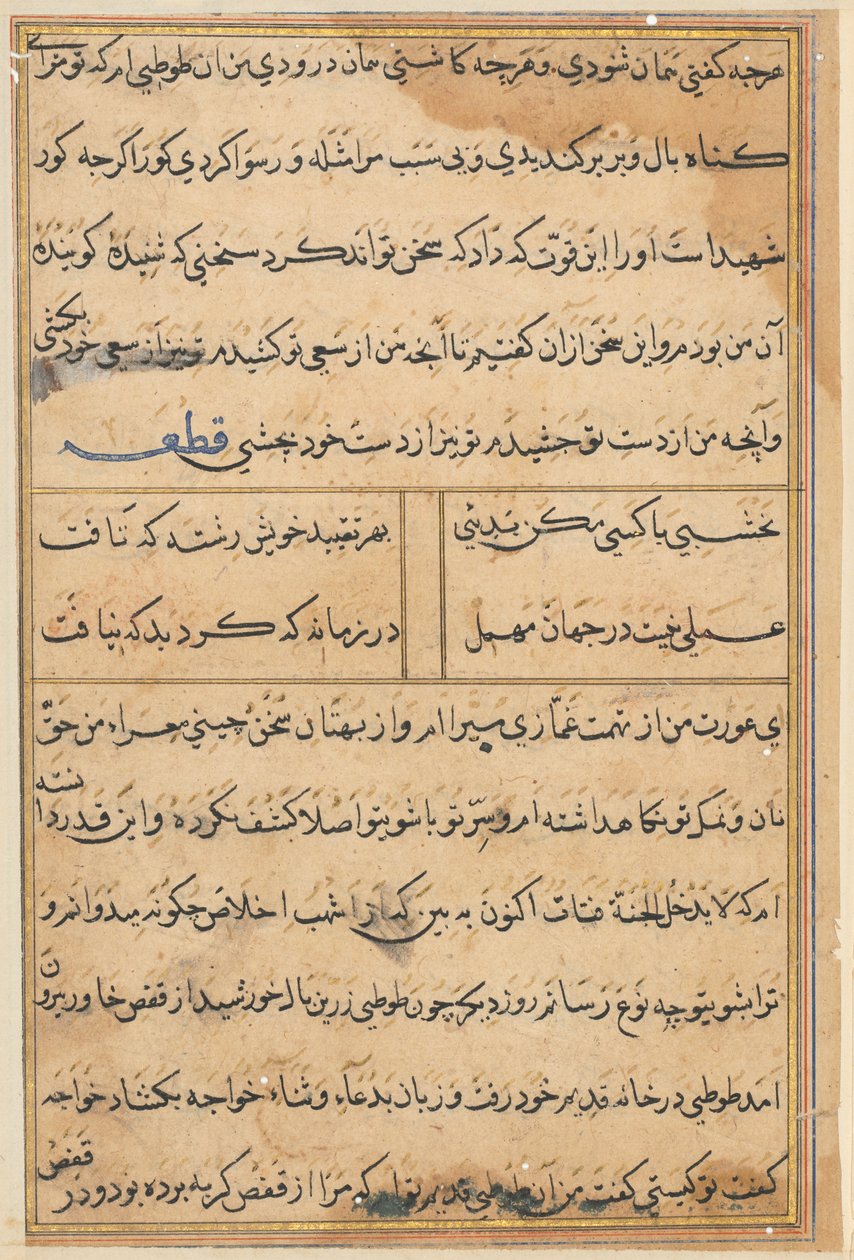 هرجه کفتی همان شنودی وهرچه کاشتی همان درودی من ان طوطی ام که تو مرا بے
کناه بال و پر برکندیدی و بی سبب مرا مثله و رسوا کردی کور اکرجه کور
شهیدا ست اورا این قوّت که داد که سخن تواند کرد سخنی که شنیدهٔ کوینده
آن من بودم واین سخن ازان کفتیم تا آنجه من از سعی تو کشیدم تو نیز از سعی خود بکشی
وآنچه من از دست تو جشیدم تو نیز از دست خود بچشی قطعه
نخشبی با کسی مکن بدئی بهر تقیید خویش رشته که تافت
عملی نیست در جهان مهمل در زمانه که کرد بد که نیافت
ای عورت من از تهمت غمّازی مبرا ام و از بهتان سخن چینی معراء من حقّ
نان و نمک تو نکاهداشته ام و سرّ تو با شوی تو اصلا کشف نکرده و این قدر دانسته
ام که لا یدخل الجنة قتات اکنون به بین که از اشهب اخلاص چکونه میدوانم و
ترا بشوی تو چه نوع رسانم روز دیکر چون طوطی زرین بال خورشید از قفص خاور بیرون
امد طوطی در خانه قدیم خود رفت و زبان بدعاء و ثناء خواجه بکشاد خواجه
کفت تو کیستی کفت من آن طوطی قدیم توام که مرا از قفص کربه برده بود و در قفص